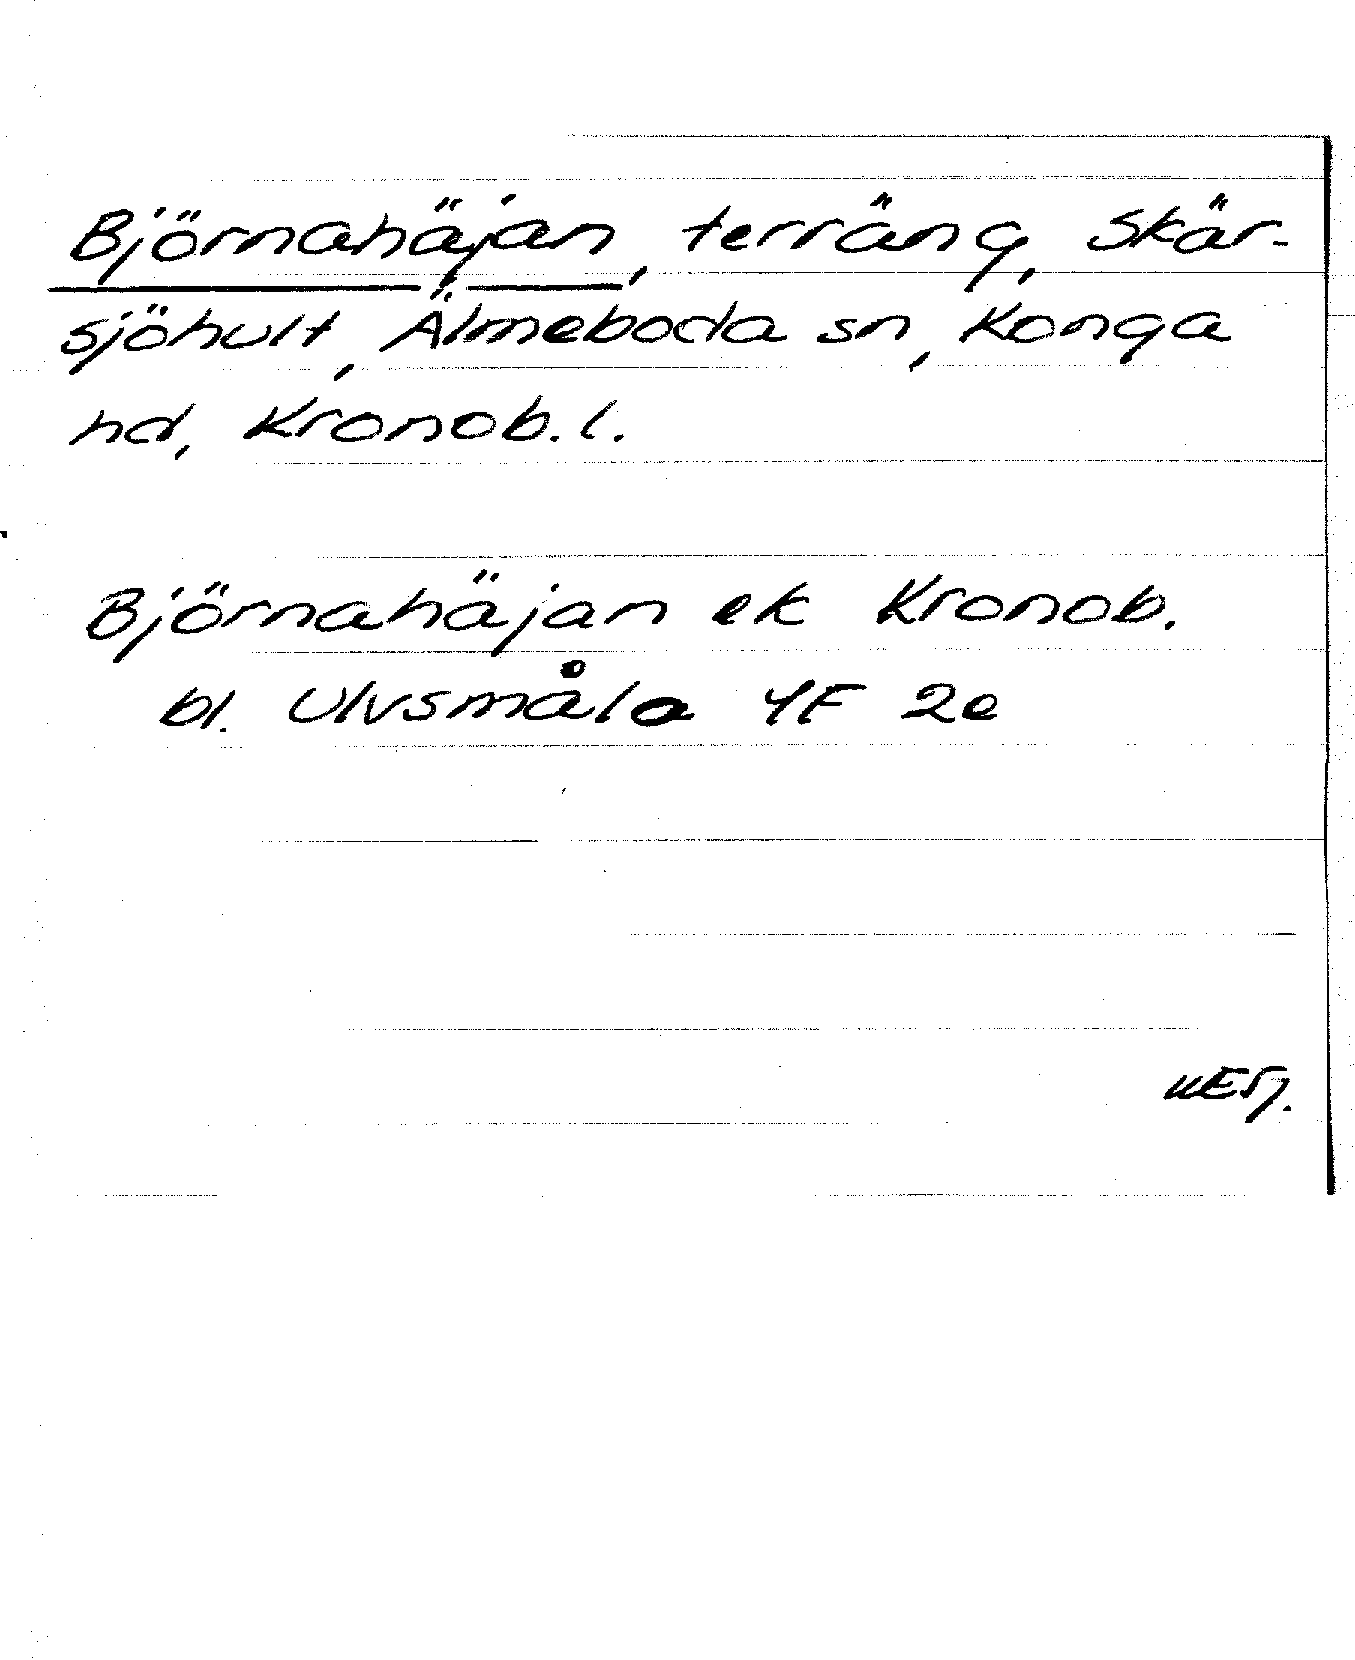 Björnahäjan, terräng, Skär-
sjöhult, Älmeboda sn, Konga
hd, Kronob. l.
Björnahäjan ek Kronob.
bl. Ulvsmåla 4F 2e